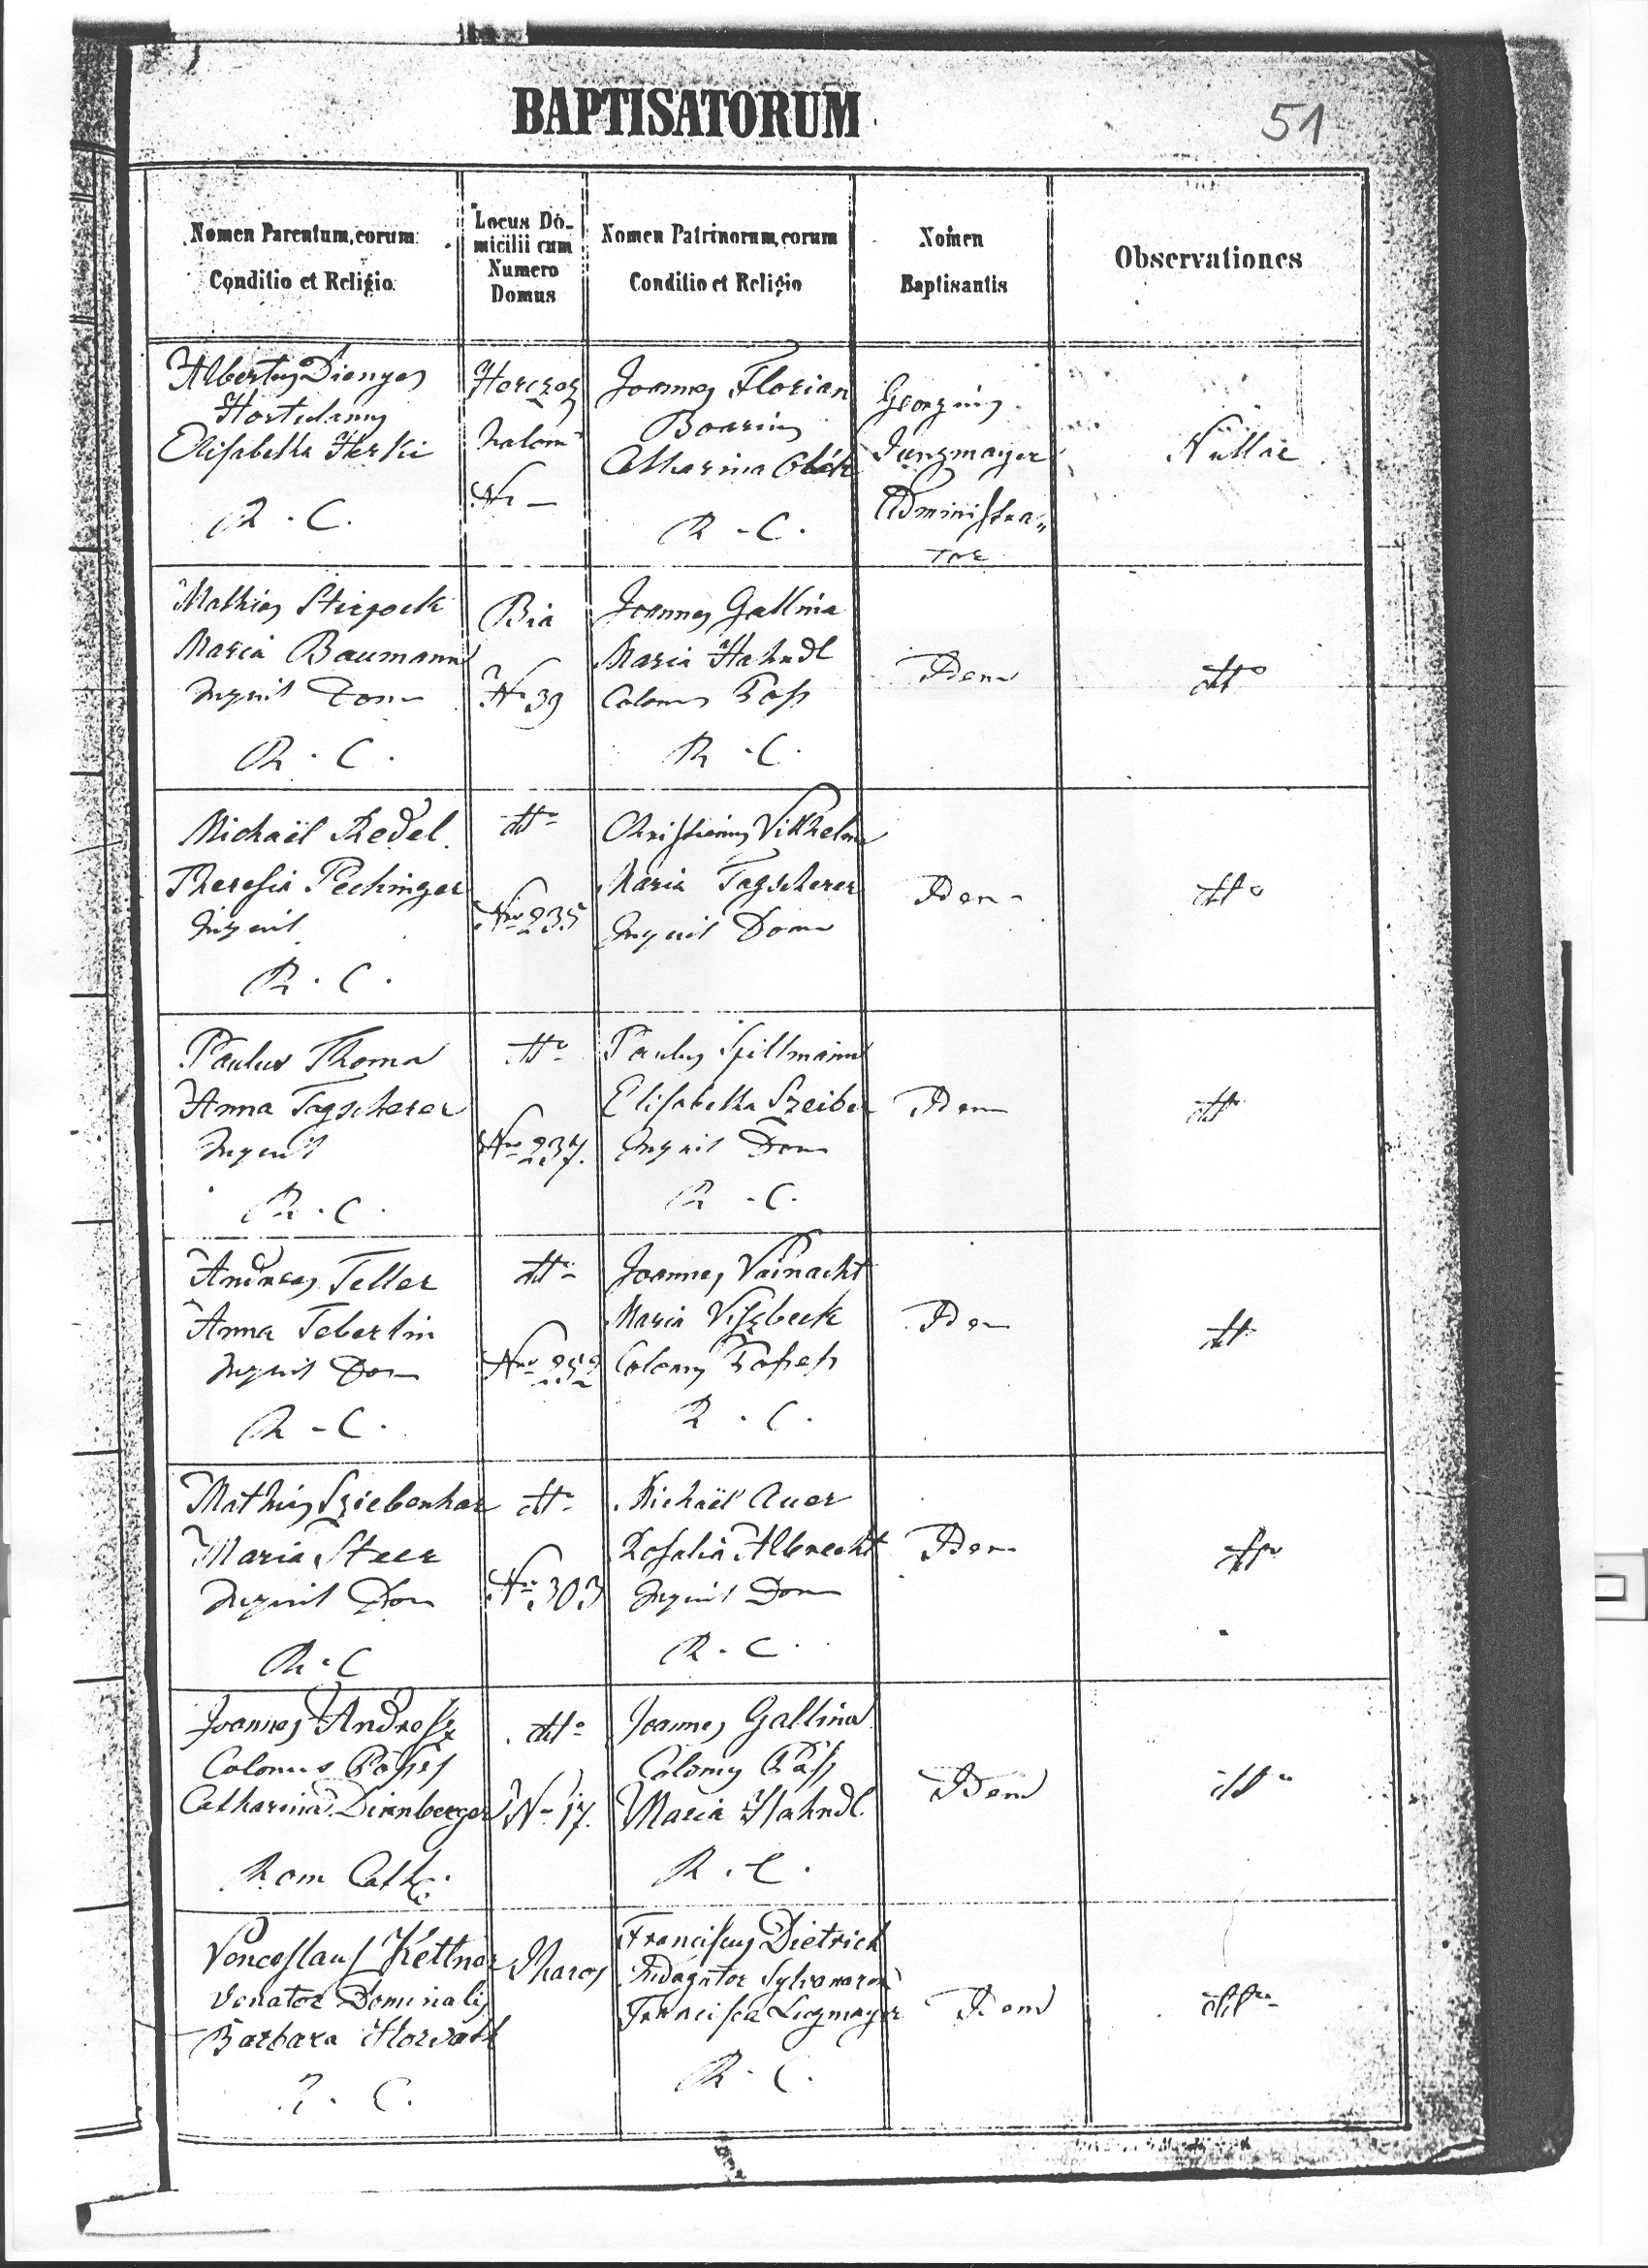 BAPTISATORUM
51
Nomen Parentum, eorum
Conditio et Religio
Locus Do-
micilii cum
Numero
Domus
Nomen Patrinorum, eorum
Conditio et Religio
Nomen
Baptisantis
Observationes
Albertus Dienyes
Hortulanus
Elisabetha Herki
R. C.
Herczeg
halom
Nr –
Joannes Florian
Boarius
Catharina
R. C.
Georgius
Jungmayer
Administra„
tor
Nullae
Mathias
Maria Baumann
Inquil Dom
R. C.
Bia
Nr 39
Joannes Gallina
Maria Hahndl
Colonus Poss
R. C.
Idem
dtto
Michaël Redel
Theresia Pechinger
Inquil
R. C.
dtto
Nro 235
Christianus Vilhelm
Maria Tagscherer
Inquil Dom
Idem
dtto
Paulus Thoma
Anna Tagscherer
Inquil
R. C.
dtto
Nro 237.
Paulus Spillmann
Elisabetha Szeibe
Inquil Dom
R. C.
Idem
dtto
Andreas Teller
Anna Teberlin
Inquil Dom
R. C.
dtto
Nro 252
Joannes Vainacht
Maria Viszbeck
Colonus Possess
R. C.
Idem
dtto
Mathias Sziebenhar
Maria Steer
Inquil Dom
R. C
dtto
Nro 303
Michaël Auer
Rosalia Albrecht
Inquil Dom
R. C
Idem
dtto
Joannes Andressz
Colonus
Catharina Dirnberger
Rom Cath.
dtto
N– 17.
Joannes Gallina
Colonus
Maria Hahndl
R. C.
Idem
dtto
Venceslaus Kettner
Venator Dominalis
Barbara Horvath
R. C.
Iharos
Franciscus Dietrich
Indagator Sylvanarum
Francisca
R. C.
Idem
dtto